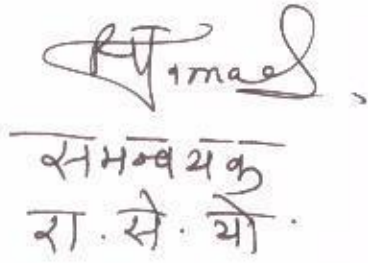 समन्वयक
रा. से. यो.